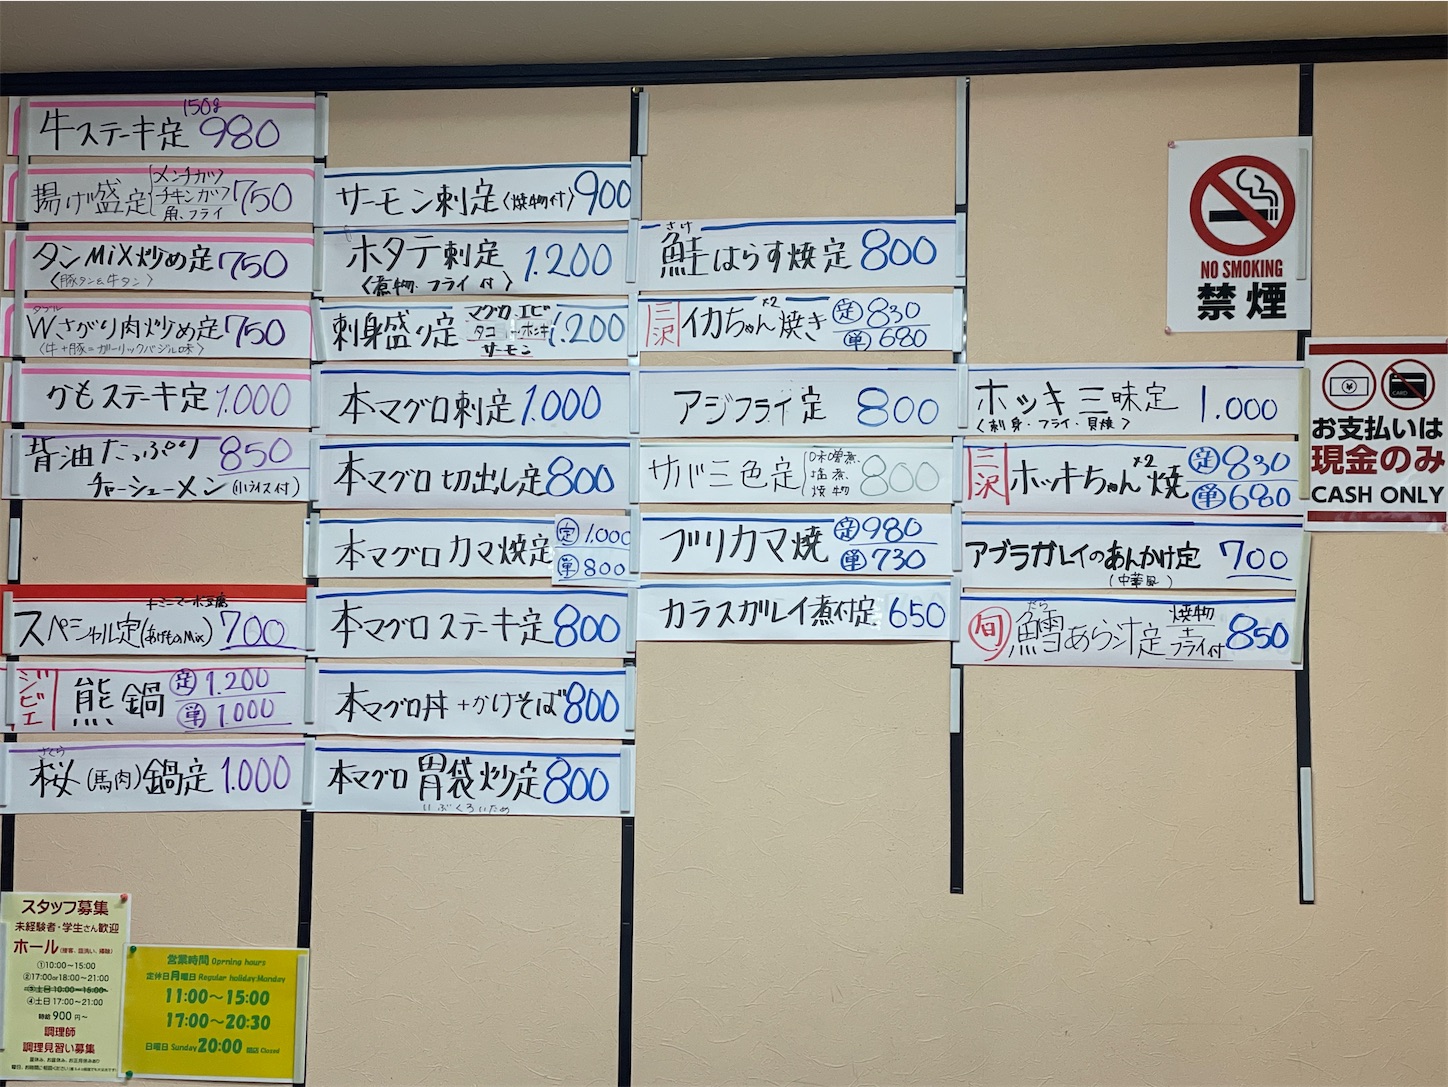 牛ステーキ定 150g 980
揚げ盛定 メンチカツ チキンカツ 魚フライ 750
タンMiX炒め定 750
〈豚タン&牛タン〉
ダブル
Wさがり肉炒め定 750
〈牛+豚=ガーリックバジル味〉
かもステーキ定 1.000
背油たっぷり 850
チャーシューメン(小ライス付)
+ミニマーボ豆腐
スペシャル定(あげものMix) 700
ジビエ 熊鍋 定 1.200
単 1.000
さくら
桜(馬肉)鍋定 1.000
サーモン刺定〈焼物付〉900
ホタテ刺定 1.200
〈煮物・フライ付〉
刺身盛り定 マグロ エビ タコ ホッキ サーモン 1.200
本マグロ刺定 1.000
本マグロ切出し定 800
本マグロカマ焼定 定 1.000
単 800
本マグロステーキ定 800
本マグロ丼+かけそば 800
本マグロ胃袋炒定 800
いぶくろいため
さけ
鮭はらす焼定 800
三沢 イカちゃん焼き ×2 定 830
単 680
アジフライ定 800
サバ三色定 味噌煮、塩煮、焼物 800
ブリカマ焼 定 980
単 730
カラスガレイ煮付定 650
ホッキ三昧定 1.000
〈刺身・フライ・貝焼〉
三沢 ホッキちゃん焼 ×2 定 830
単 680
アブラガレイのあんかけ定 700
(中華風)
たら
旬 鱈あら汁定 焼物 フライ付 850
NO SMOKING
禁煙
¥
CARD
お支払いは
現金のみ
CASH ONLY
スタッフ募集
未経験者・学生さん歓迎
ホール(接客、皿洗い、掃除)
①10:00〜15:00
②17:00or18:00〜21:00
③土日 10:00〜15:00
④土日 17:00〜21:00
時給 900 円〜
調理師
調理見習い募集
営業時間 Oprning hours
定休日月曜日 Regular holiday:Monday
11:00〜15:00
17:00〜20:30
日曜日 Sunday 20:00 閉店 Closed